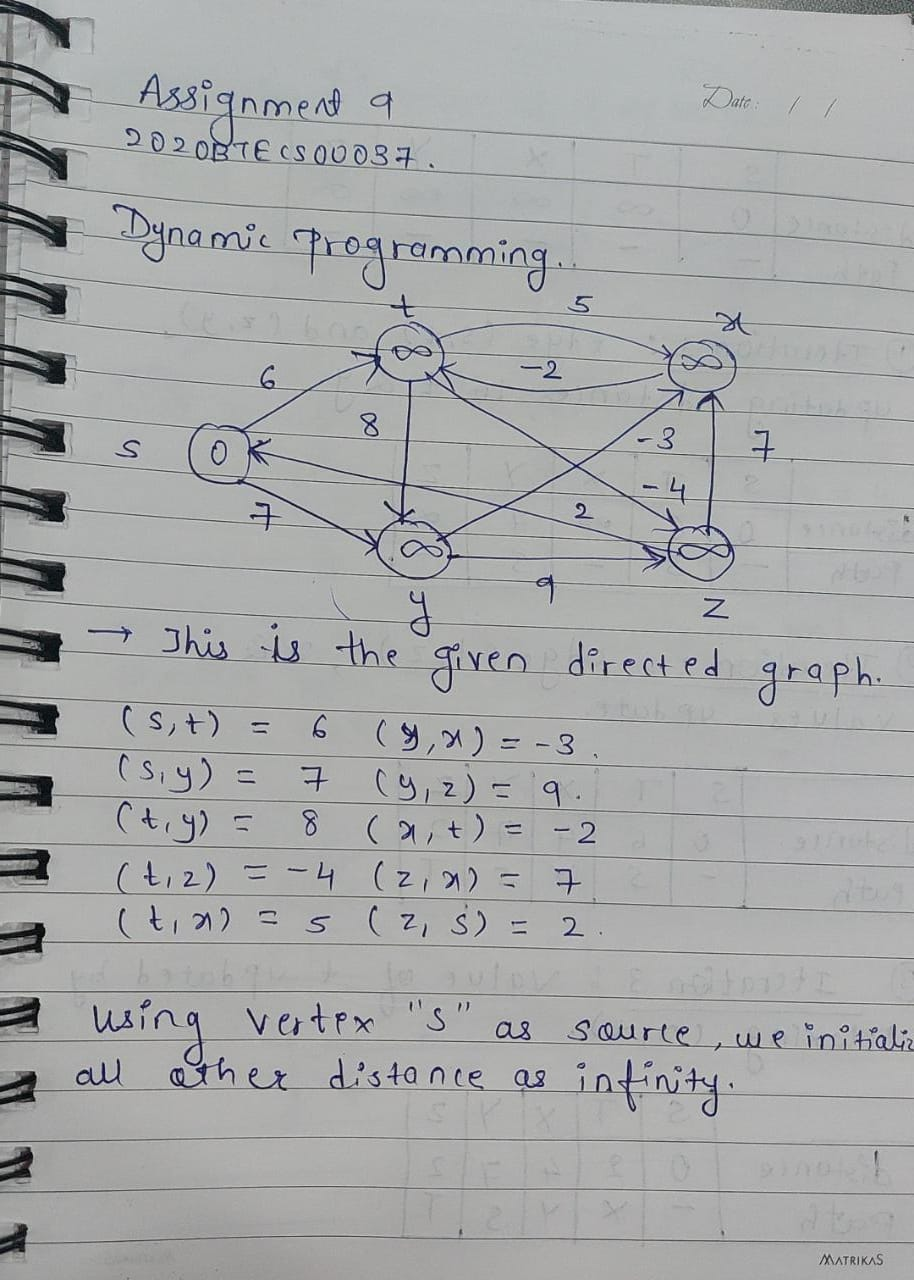 Assignment 9
Date: / /
2020BTECS00037.
Dynamic Programming..
t 5 x
∞ ∞
6 -2
8 -3 7
s 0
-4
7 2
∞ ∞
9
y z
→ This is the given directed graph.
(s,t) = 6 (y,x) = -3.
(s,y) = 7 (y,z) = 9.
(t,y) = 8 (x,t) = -2
(t,z) = -4 (z,x) = 7
(t,x) = 5 (z,s) = 2.
Using vertex "s" as source, we initializ
all other distance as infinity.
MATRIKAS